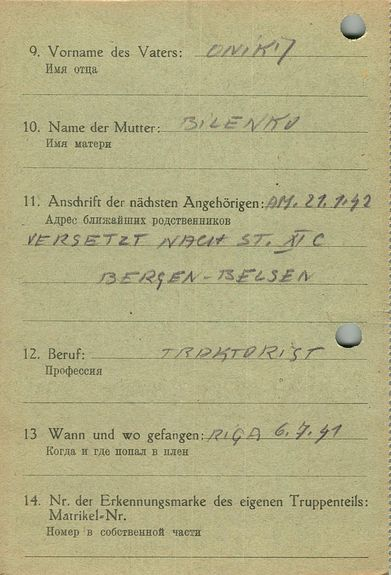 9. Vorname des Vaters: ONIKIJ
Имя отца
10. Name der Mutter: BILENKO
Имя матери
11. Anschrift der nächsten Angehörigen: AM. 21.1.42
Адрес ближайших родственников
VERSETZT NACH ST. XI C
BERGEN-BELSEN
12. Beruf: TRAKTORIST
Профессия
13 Wann und wo gefangen: RIGA 6.7.41
Когда и где попал в плен
14. Nr. der Erkennungsmarke des eigenen Truppenteils:
Matrikel-Nr.
Номер в собственной части